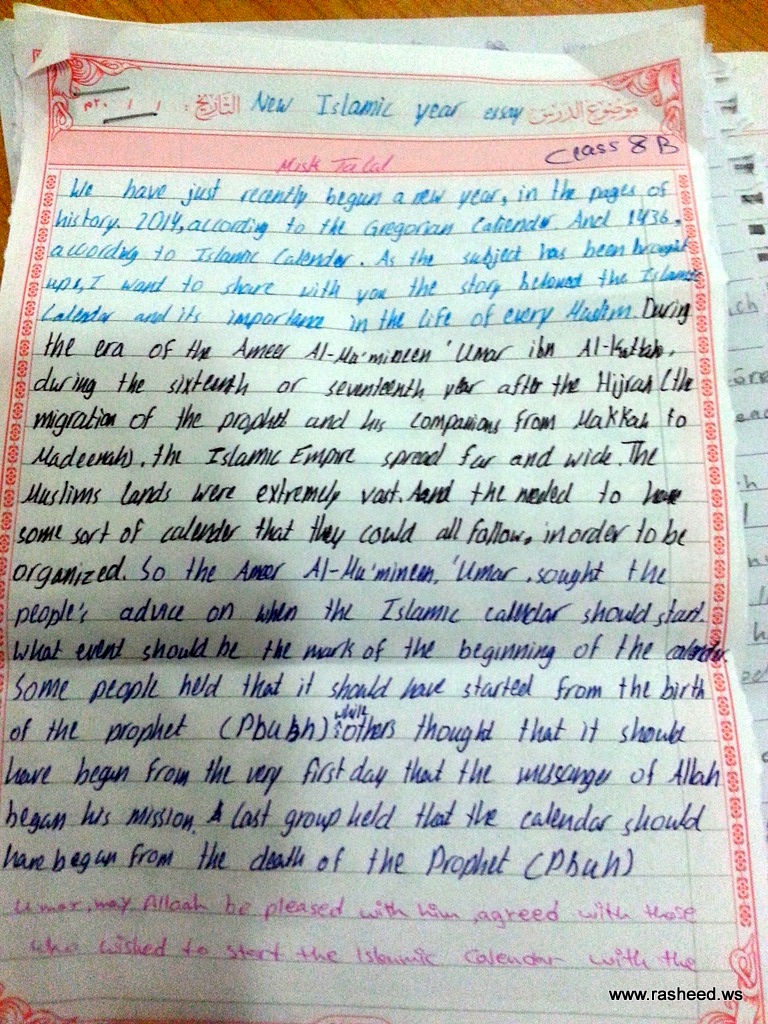 موضوع الدرس New Islamic year essay التاريخ: / / ٢٠م
Class 8 B
Misk Talal
We have just recently begun a new year, in the pages of
history. 2014, according to the Gregorian Caliender. And 1436,
according to Islamic Calender. As the subject has been brought
up, I want to share with you the story behind the Islamic
Calendar and its importance in the life of every Muslim. During
the era of the Ameer Al-Mu'mineen 'Umar ibn Al-Kattab,
during the sixteenth or seventeenth year after the Hijrah (the
migration of the prophet and his companions from Makkah to
Madeenah), the Islamic Empire spread far and wide. The
Muslims lands were extremely vast. And the needed to have
some sort of calender that they could all follow, in order to be
organized. So the Ameer Al-Mu'mineen, 'Umar, sought the
people's advice on when the Islamic calendar should start.
What event should be the mark of the beginning of the calendar
Some people held that it should have started from the birth
of the prophet (Pbubh) while others thought that it should
have began from the very first day that the messanger of Allah
began his mission. A last group held that the calendar should
have began from the death of the Prophet (Pbuh)
Umar, may Allaah be pleased with him, agreed with those
who wished to start the Islamic Calendar with the
www.rasheed.ws